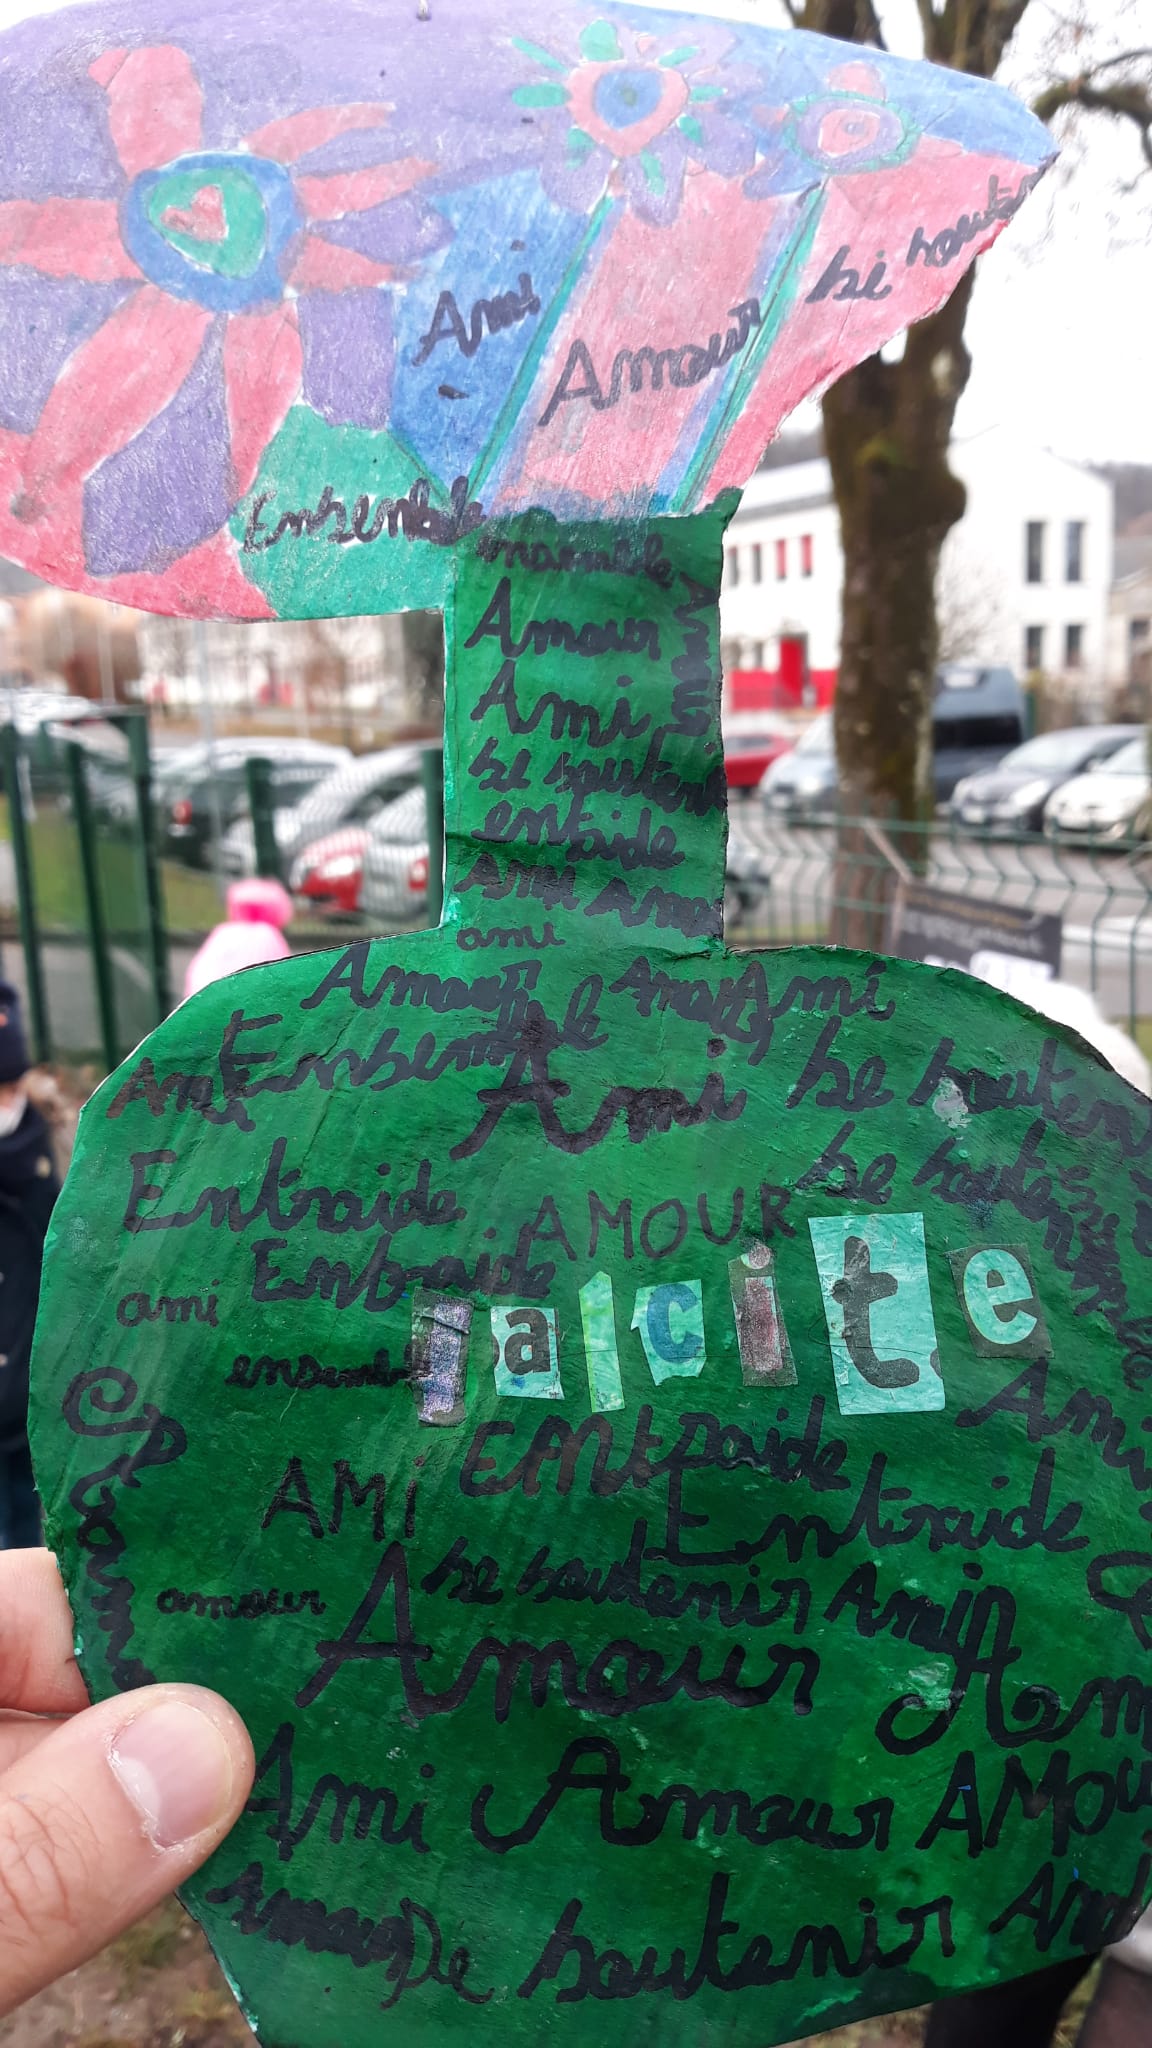 Ami
Amour
se soute
Ensemble
ensemble
Amour
Ami
se souten
entraide
ami ami
ami
Amour Amour Ami
Ensemble
Ami se souten
Entraide AMOUR se souten
Entraide
ami
lalcite
ensemble
Ami
ENtraide
AMi
Entraide
se soutenir Ami
amour
Amour Am
Ami Amour AMOU
amour se soutenir Ami